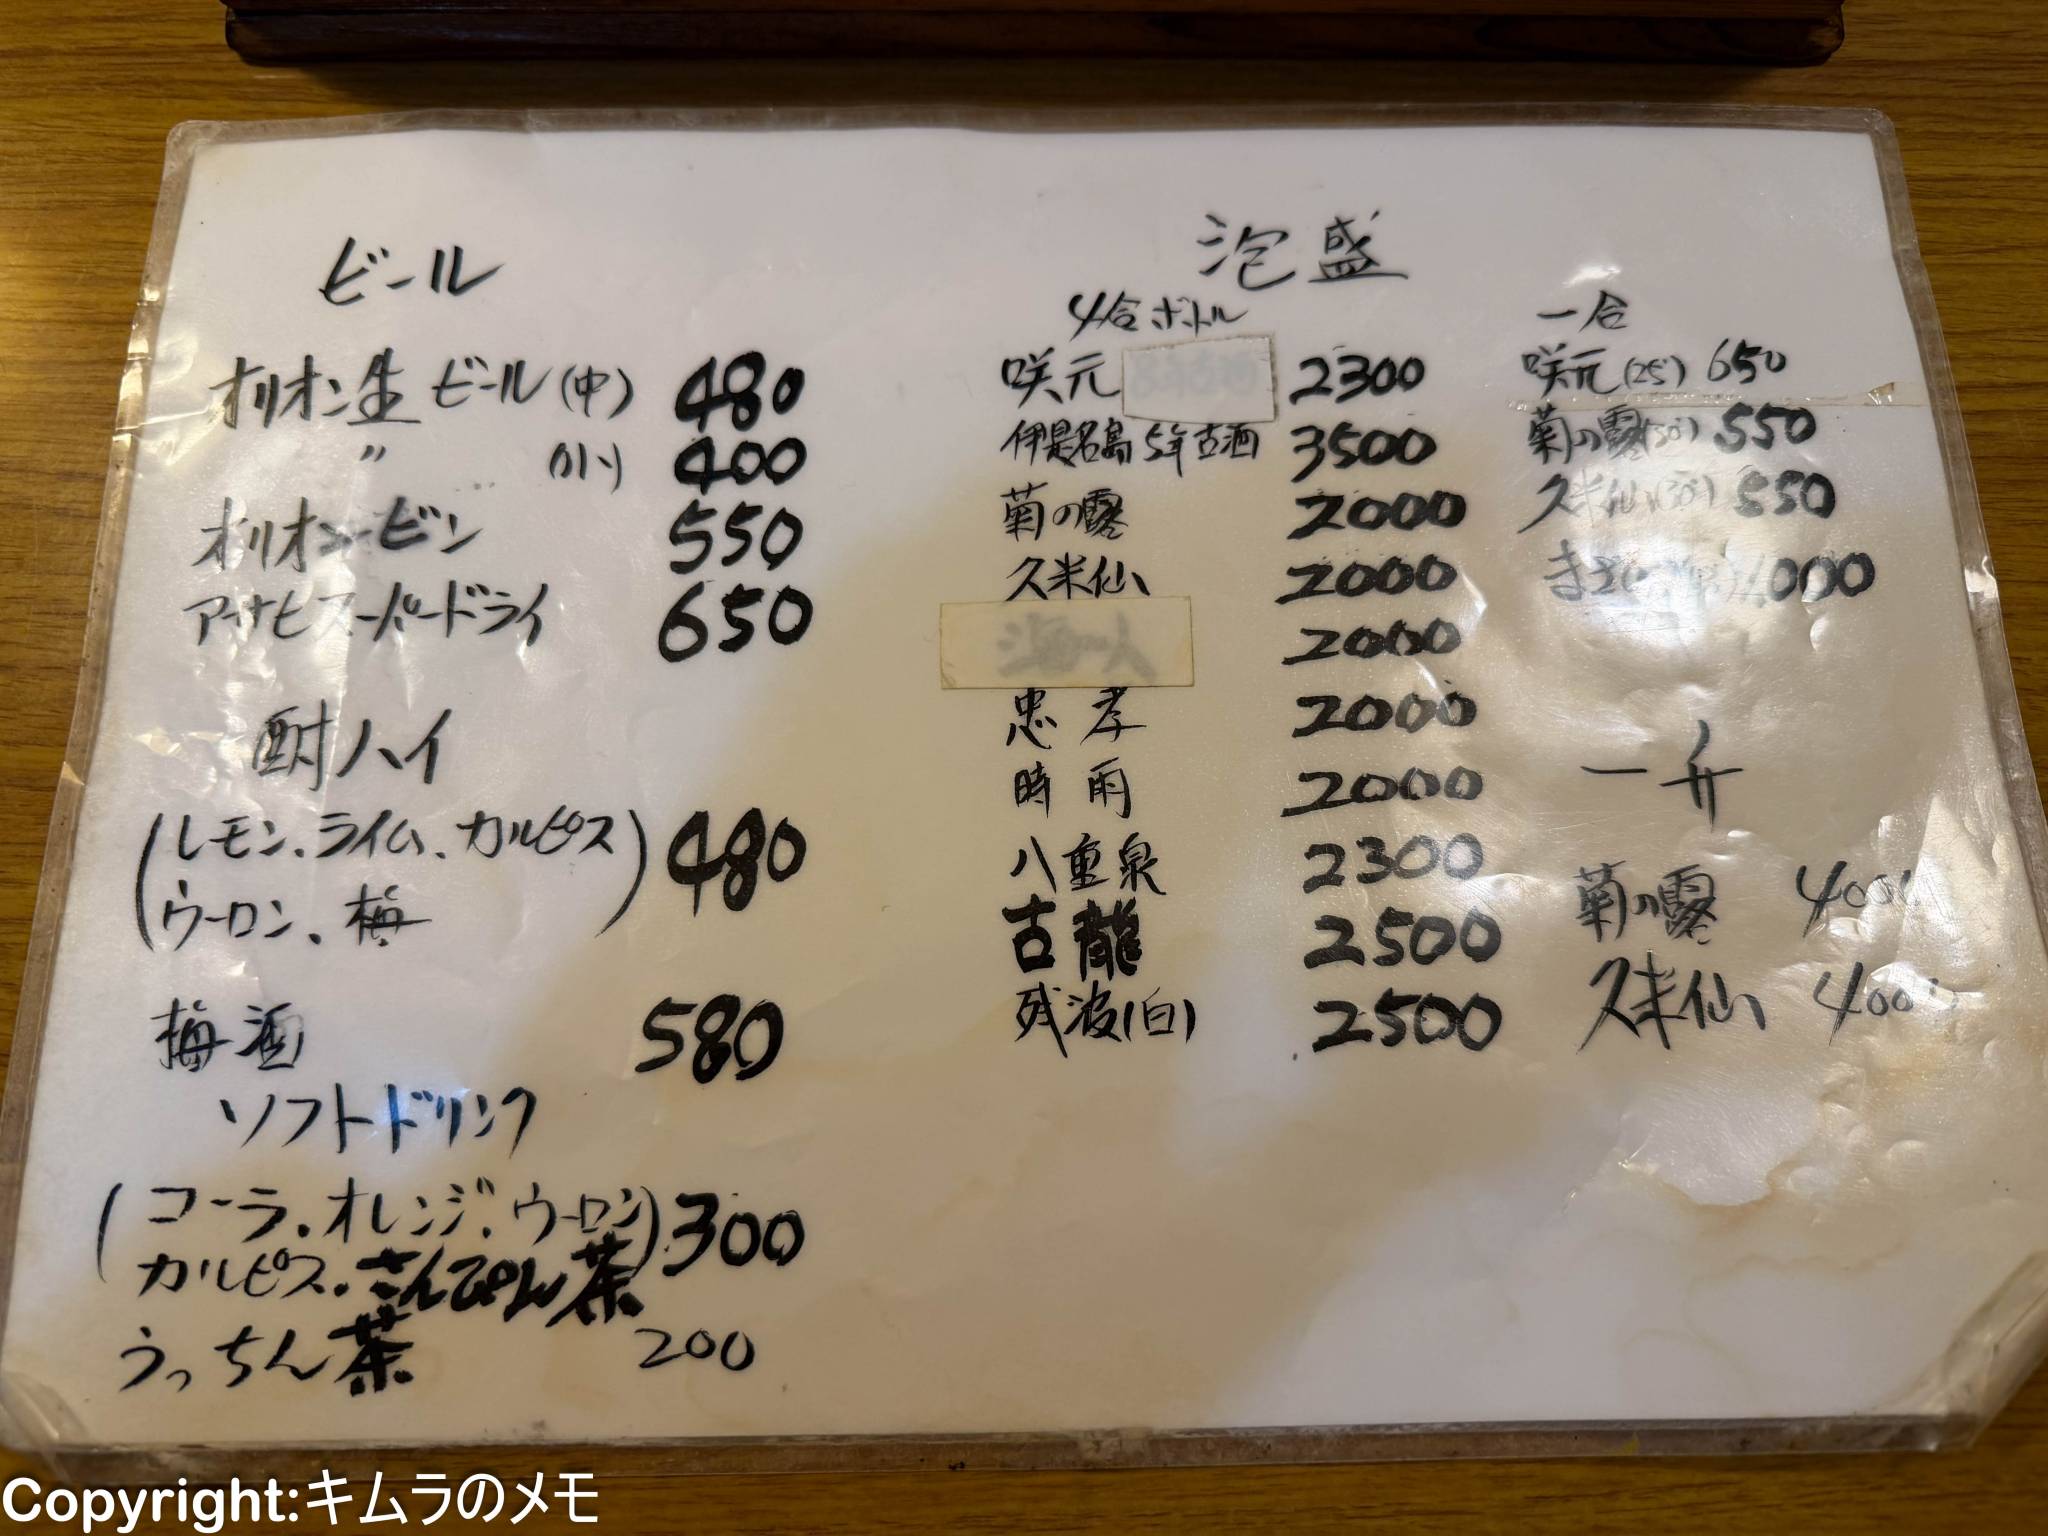 ビール
オリオン生ビール(中) 480
〃 (小) 400
オリオンビン 550
アサヒスーパードライ 650
酎ハイ
(レモン、ライム、カルピス
ウーロン、梅) 480
梅酒 580
ソフトドリンク
(コーラ、オレンジ、ウーロン) 300
カルピス、さんぴん茶
うっちん茶 200
泡盛
4合ボトル
咲元 2300
伊是名島5年古酒 3500
菊の露 2000
久米仙 2000
2000
忠孝 2000
時雨 2000
八重泉 2300
古龍 2500
残波(白) 2500
一合
咲元(25) 650
菊の露(30) 550
久米仙(30) 550
一升
菊の露 4000
久米仙 4000
Copyright:キムラのメモ